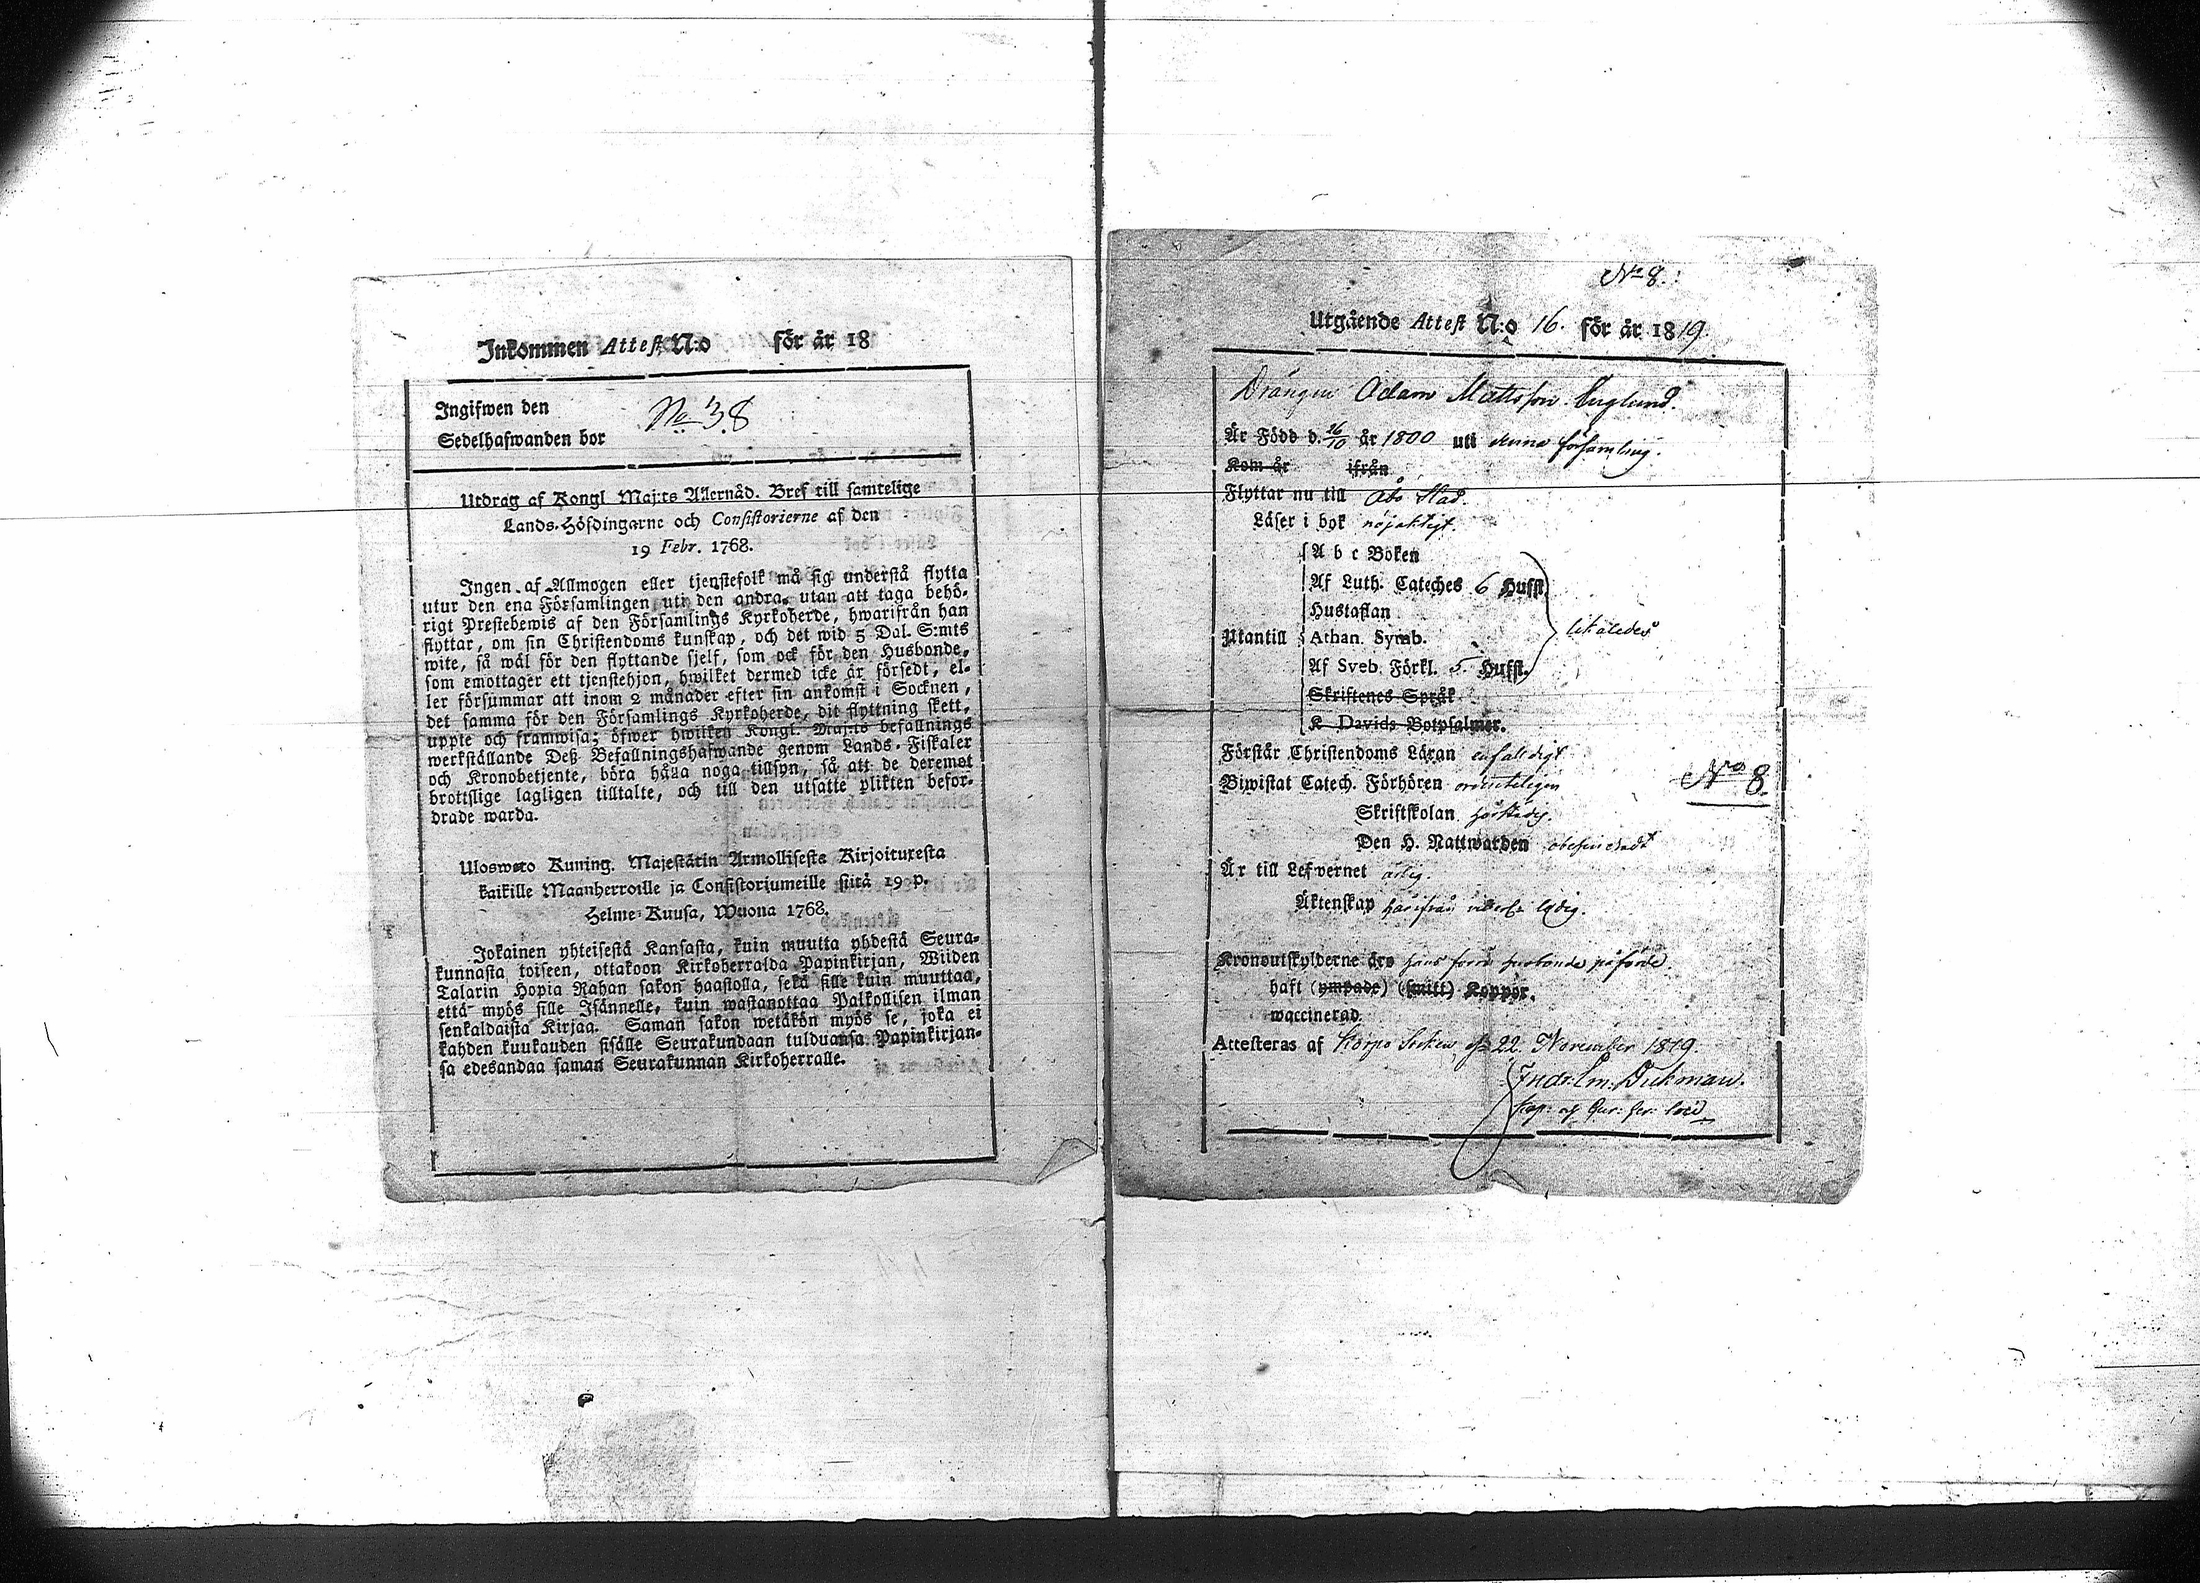 Inkommen Attest N:o för år 18
Ingifwen den
No 38
Sedelhafwanden bor
Utdrag af Kongl Maj:ts Allernåd. Bref till samtelige
Lands-Höfdingarne och Consistorierne af den
19 Febr. 1768.
Ingen af Allmogen eller tjenstefolk må sig understå flytta
utur den ena Församlingen uti den andra, utan att taga behö-
rigt Prestebewis af den Församlings Kyrkoherde, hwarifrån han
flyttar, om sin Christendoms kunskap, och det wid 5 Dal. S:mts
wite, så wäl för den flyttande sjelf, som ock för den Husbonde,
som emottager ett tjenstehjon, hwilket dermed icke är försedt, el-
ler försummar att inom 2 månader efter sin ankomst i Socknen,
det samma för den Församlings Kyrkoherde, dit flyttning skett,
uppte och framwisa; öfwer hwilken Kongl. Maj:ts befallnings
werkställande Deß Befallningshafwande genom Lands-Fiskaler
och Kronobetjente, böra hålla noga tillsyn, så att de deremot
brottslige lagligen tilltalte, och till den utsatte plikten befor-
drade warda.
Ulosweto Kuning. Majestätin Armollisesta Kirjoituresta
kaikille Maanherroille ja Consistoriumeille siitä 19 p.
Helme-Kuusa, Wuona 1768.
Jokainen yhteisestä Kansasta, kuin muutta yhdestä Seura-
kunnasta toiseen, ottakoon Kirkoherralda Papinkirjan, Wiiden
Talarin Hopia Rahan sakon haastolla, sekä sille kuin muuttaa,
että myös sille Isännelle, kuin wastanottaa Palkollisen ilman
senkaldaista Kirjaa. Saman sakon wetäkön myös se, joka ei
kahden kuukauden sisälle Seurakundaan tulduansa Papinkirjan-
sa edesandaa saman Seurakunnan Kirkoherralle.
No 8.
Utgående Attest N:o 16. för år 1819.
Drängen Adam Mattsson Englund.
Är Född d. 26/10 år 1800 uti denna församling.
Kom år ifrån
Flyttar nu till Åbo Stad.
Läser i bok nöjaktigt.
A b c Boken
Af Luth. Cateches 6 Hufst.
Hustaflan
Utantill Athan. Symb. likaledes
Af Sveb. Förkl. 5. Hufst.
Skriftenes Språk
K Davids Botpsalmer.
Förstår Christendoms Läran enfaldigt
Biwistat Catech. Förhören ordenteligen
No 8.
Skriftskolan
Den H. Nattwarden
Är till Lefvernet ärlig.
Äktenskap härifrån ledig.
Kronoutskylderne äro hans förra husbonde påförde.
haft (ympade) (smitt) Koppor.
waccinerad.
Attesteras af Korpo Socken 22 November 1819.